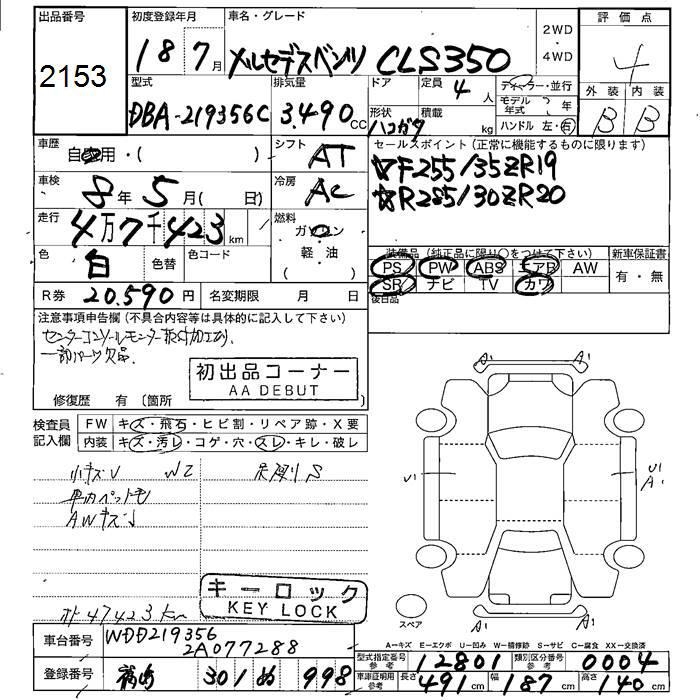 出品番号
2153
初度登録年月
18 7月
車名・グレード
メルセデスベンツ CLS350
2WD
・
4WD
評価点
4
外装 内装
B B
型式
DBA-219356C
排気量
3.490 CC
ドア 4
定員 人
形状 ハコガタ
積載 kg
ディーラー・並行
モデル年式 年
ハンドル 左・右
車歴
自家用・( )
シフト
AT
セールスポイント (正常に機能するものに限ります)
☆F255/35ZR19
☆R285/30ZR20
車検
8年5月( 日)
冷房
AC
走行
4万7千423km
燃料
ガソリン
軽・油
( )
色
白
色替
色コード
装備品 (純正品に限り○をつけて下さい)
PS PW ABS エアB AW
SR ナビ TV カワ
後日品
新車保証書
有・無
R券 20.590円
名変期限 月 日
注意事項申告欄 (不具合内容等は具体的に記入して下さい)
センターコンソールモニター取付加工あり
一部パーツ欠品
初出品コーナー
AA DEBUT
修復歴 有〔箇所
検査員記入欄
FW キズ・飛石・ヒビ割・リペア跡・X要
内装 キズ・汚レ・コゲ・穴・スレ・キレ・破レ
小キズU W2
車内ペット毛
AWキズ
キーロック
KEY LOCK
47423km
車台番号
WDD219356
2A077288
登録番号
福島 301 ぬ 998
A' A'
U' U'
A'
A' A'
スペア
A−キズ E−エクボ U−凹み W−補修跡 S−サビ C−腐食 XX−交換済
型式指定番号 参考 12801
類別区分番号 参考 0004
車庫証明用 参考
長さ 491cm 幅 187cm 高さ 140cm